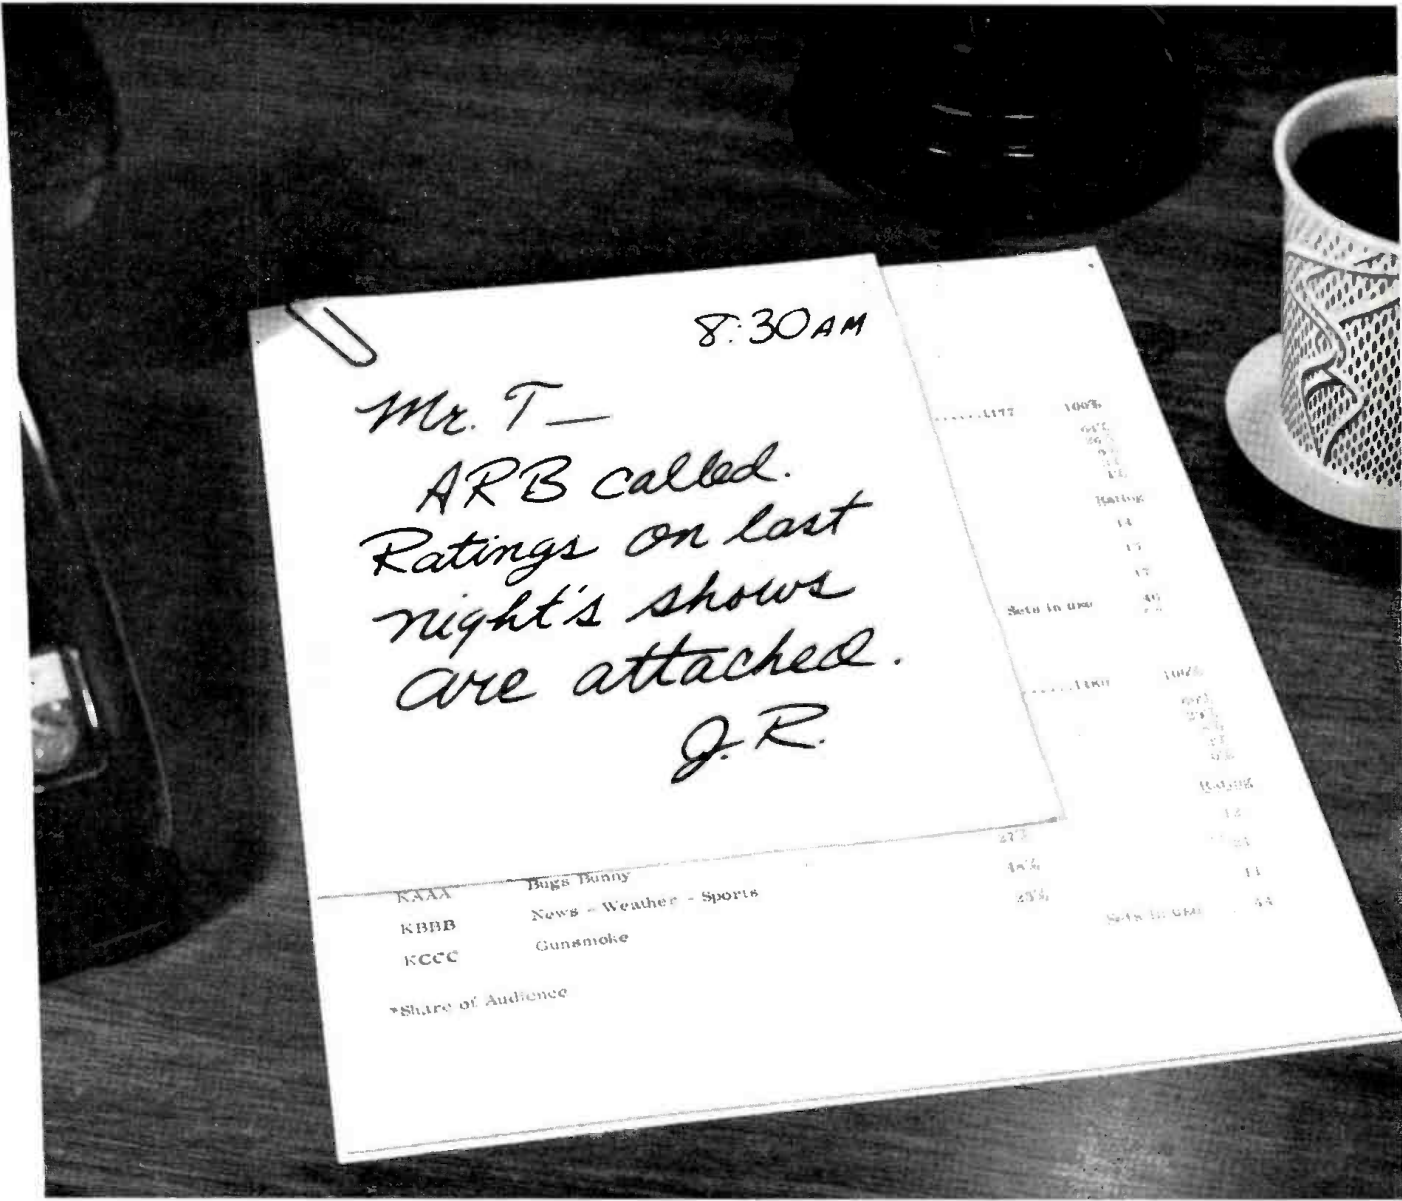 8:30 AM
Mr. T—
ARB called.
Ratings on last
night's shows
are attached.
J.R.
......1177 100%
Rating
14
15
17
Sets in use 46
100%
Rating
12
21
11
27%
48%
25%
Sets in use 44
KAAA Bugs Bunny
KBBB News - Weather - Sports
KCCC Gunsmoke
*Share of Audience